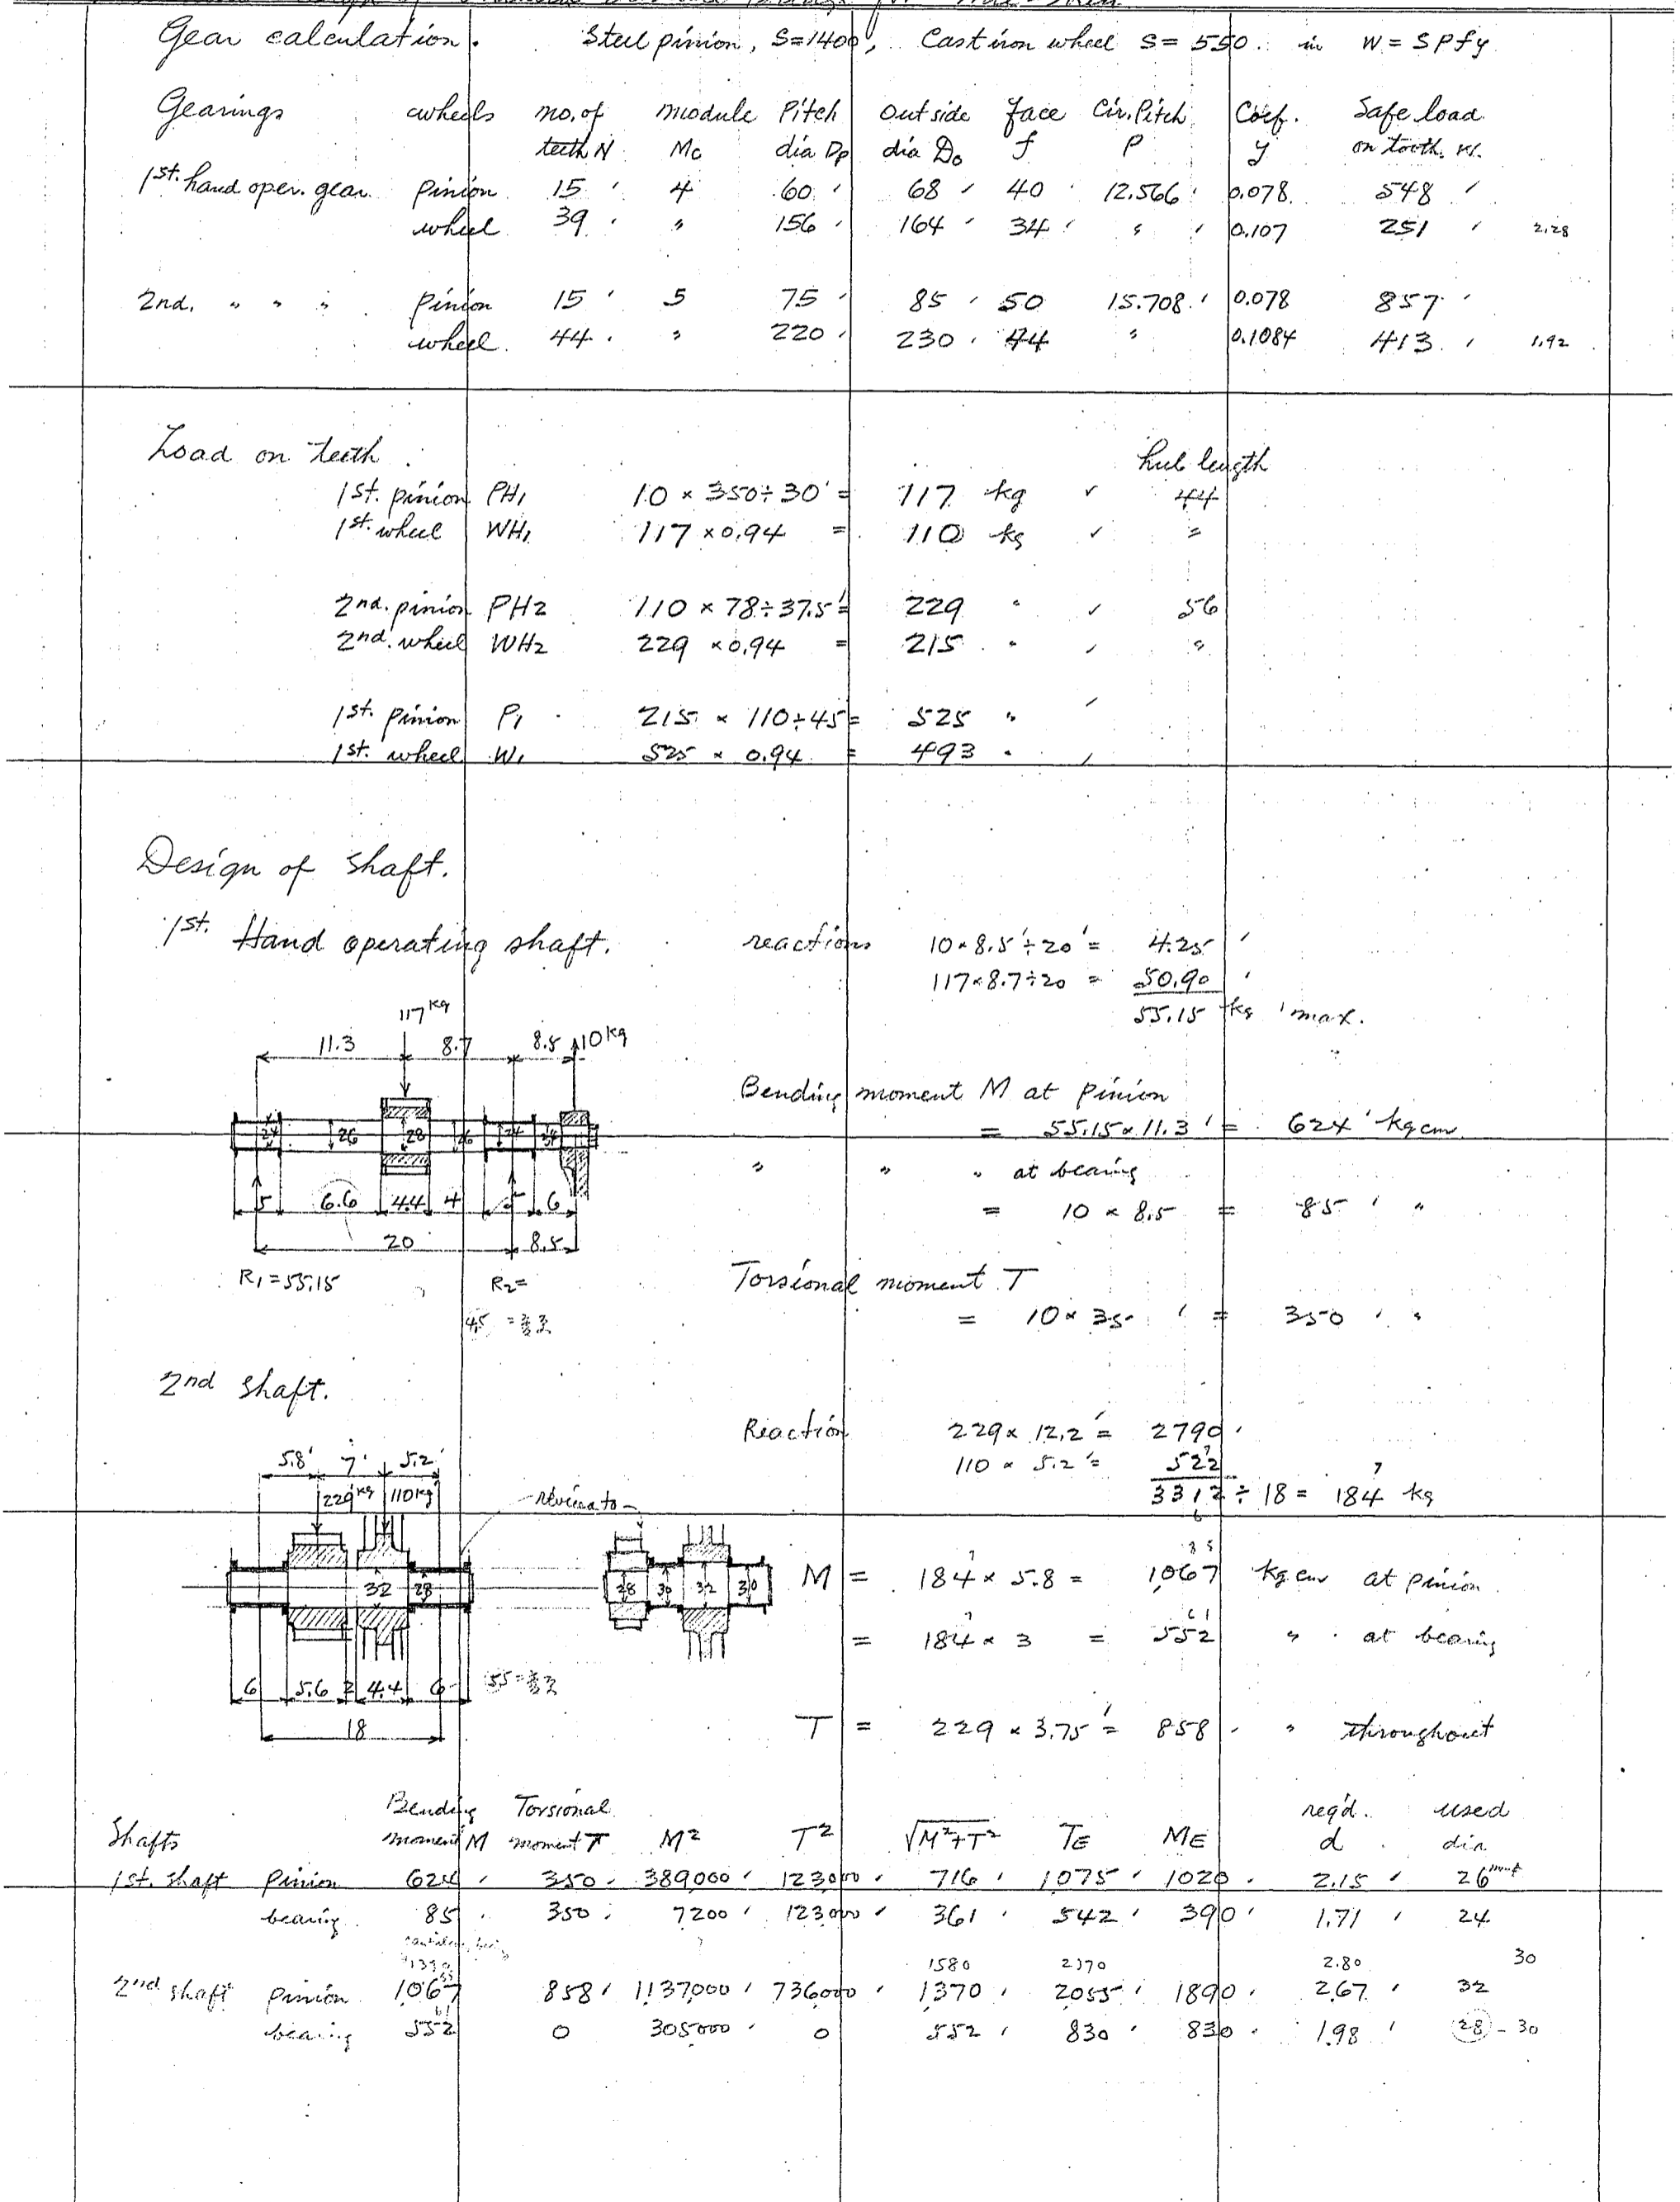 Gear calculation. Steel pinion, S=1400, Cast iron wheel S= 550. in W = S P f y
Gearings wheels no. of module Pitch outside face Cir. Pitch Coef. Safe load
teeth N Mc dia Dp dia Do f P y on tooth. Kg.
1st. hand oper. gear. pinion 15 4 60 68 40 12.566 0.078 548
wheel 39 " 156 164 34 " 0.107 251 2.28
2nd. " " " pinion 15 5 75 85 50 15.708 0.078 857
wheel. 44 " 220 230 44 " 0.1084 413 1.92
Load on teeth hub length
1st. pinion PH1 10 × 350÷30 = 117 kg ✓ 44
1st. wheel WH1 117 × 0.94 = 110 kg ✓ "
2nd. pinion PH2 110 × 78÷37.5 = 229 " ✓ 56
2nd. wheel WH2 229 × 0.94 = 215 " "
1st. Pinion P1 215 × 110÷45 = 525 "
1st. wheel W1 525 × 0.94 = 493 "
Design of shaft.
1st. Hand operating shaft. reactions 10×8.5÷20 = 4.25
117×8.7÷20 = 50.90
55.15 kg max.
117 kg
11.3 8.7 8.5 10 kg
Bending moment M at pinion
= 55.15×11.3 = 624 kg cm
24 26 28 26 24
" " " at bearing
5 6.6 4.4 4 5 6
= 10 × 8.5 = 85 "
20 8.5
R1=55.15 R2=
Torsional moment T
= 10×35 = 350 "
45 =
2nd shaft.
Reaction 229× 12.2 = 2790
110 × 5.2 = 522
3312 ÷ 18 = 184 kg
5.8 7 5.2
229kg 110kg
32 28
28 30 32 30
M = 184 × 5.8 = 1067 kg cm at pinion
= 184 × 3 = 552 " at bearing
6 5.6 2 4.4 6 55=
18
T = 229 × 3.75 = 858 " throughout
Bending Torsional req'd. used
Shafts moment M moment T M² T² √M²+T² TE ME d dia
1st. shaft Pinion 624 350 389000 123000 716 1075 1020 2.15 26
bearing 85 350 7200 123000 361 542 390 1.71 24
1330 1580 2370 2.80 30
2nd shaft pinion 1067 858 1137000 736000 1370 2055 1890 2.67 32
bearing 552 0 305000 0 552 830 830 1.98 28 - 30